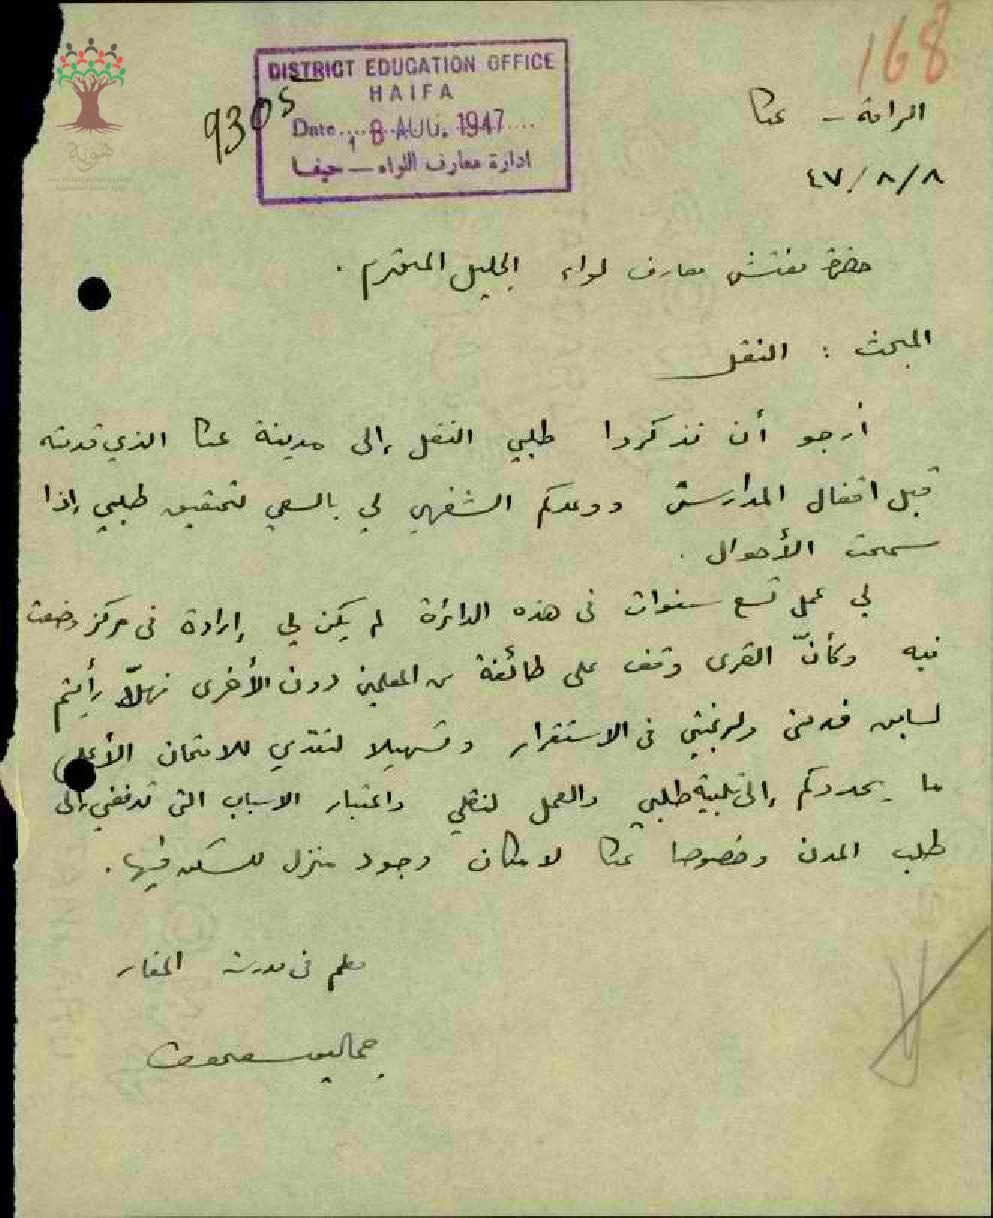 168
DISTRICT EDUCATION OFFICE
HAIFA
Date 18 AUG. 1947
ادارة معارف اللواء — حيفا
9305
هوية
الرامة - عكا
٤٧/٨/٨
حضرة مفتش معارف لواء الجليل المحترم .
المبحث : النقل
أرجو أن تذكروا طلبي النقل إلى مدينة عكا الذي قدمته
قبل اقفال المدارس ووعدكم الشفهي لي بالسعي لتحقيق طلبي إذا
سمحت الأحوال .
لي عمل تسع سنوات في هذه الدائرة لم يكن لي إرادة في مركز وضعت
فيه وكأنّ القرى وقف على طائفة من المعلمين دون الأخرى فهلّا رأيتم
لسابق خدمتي ولرغبتي في الاستقرار وتسهيلا لتقدمي للامتحان الأعلى
ما يحدوكم إلى تلبية طلبي والعمل لنقلي واعتبار الاسباب التي تدفعني إلى
طلب المدن وخصوصا عكا لامكان وجود منزل للسكن فيها .
معلم في مدرسة المغار